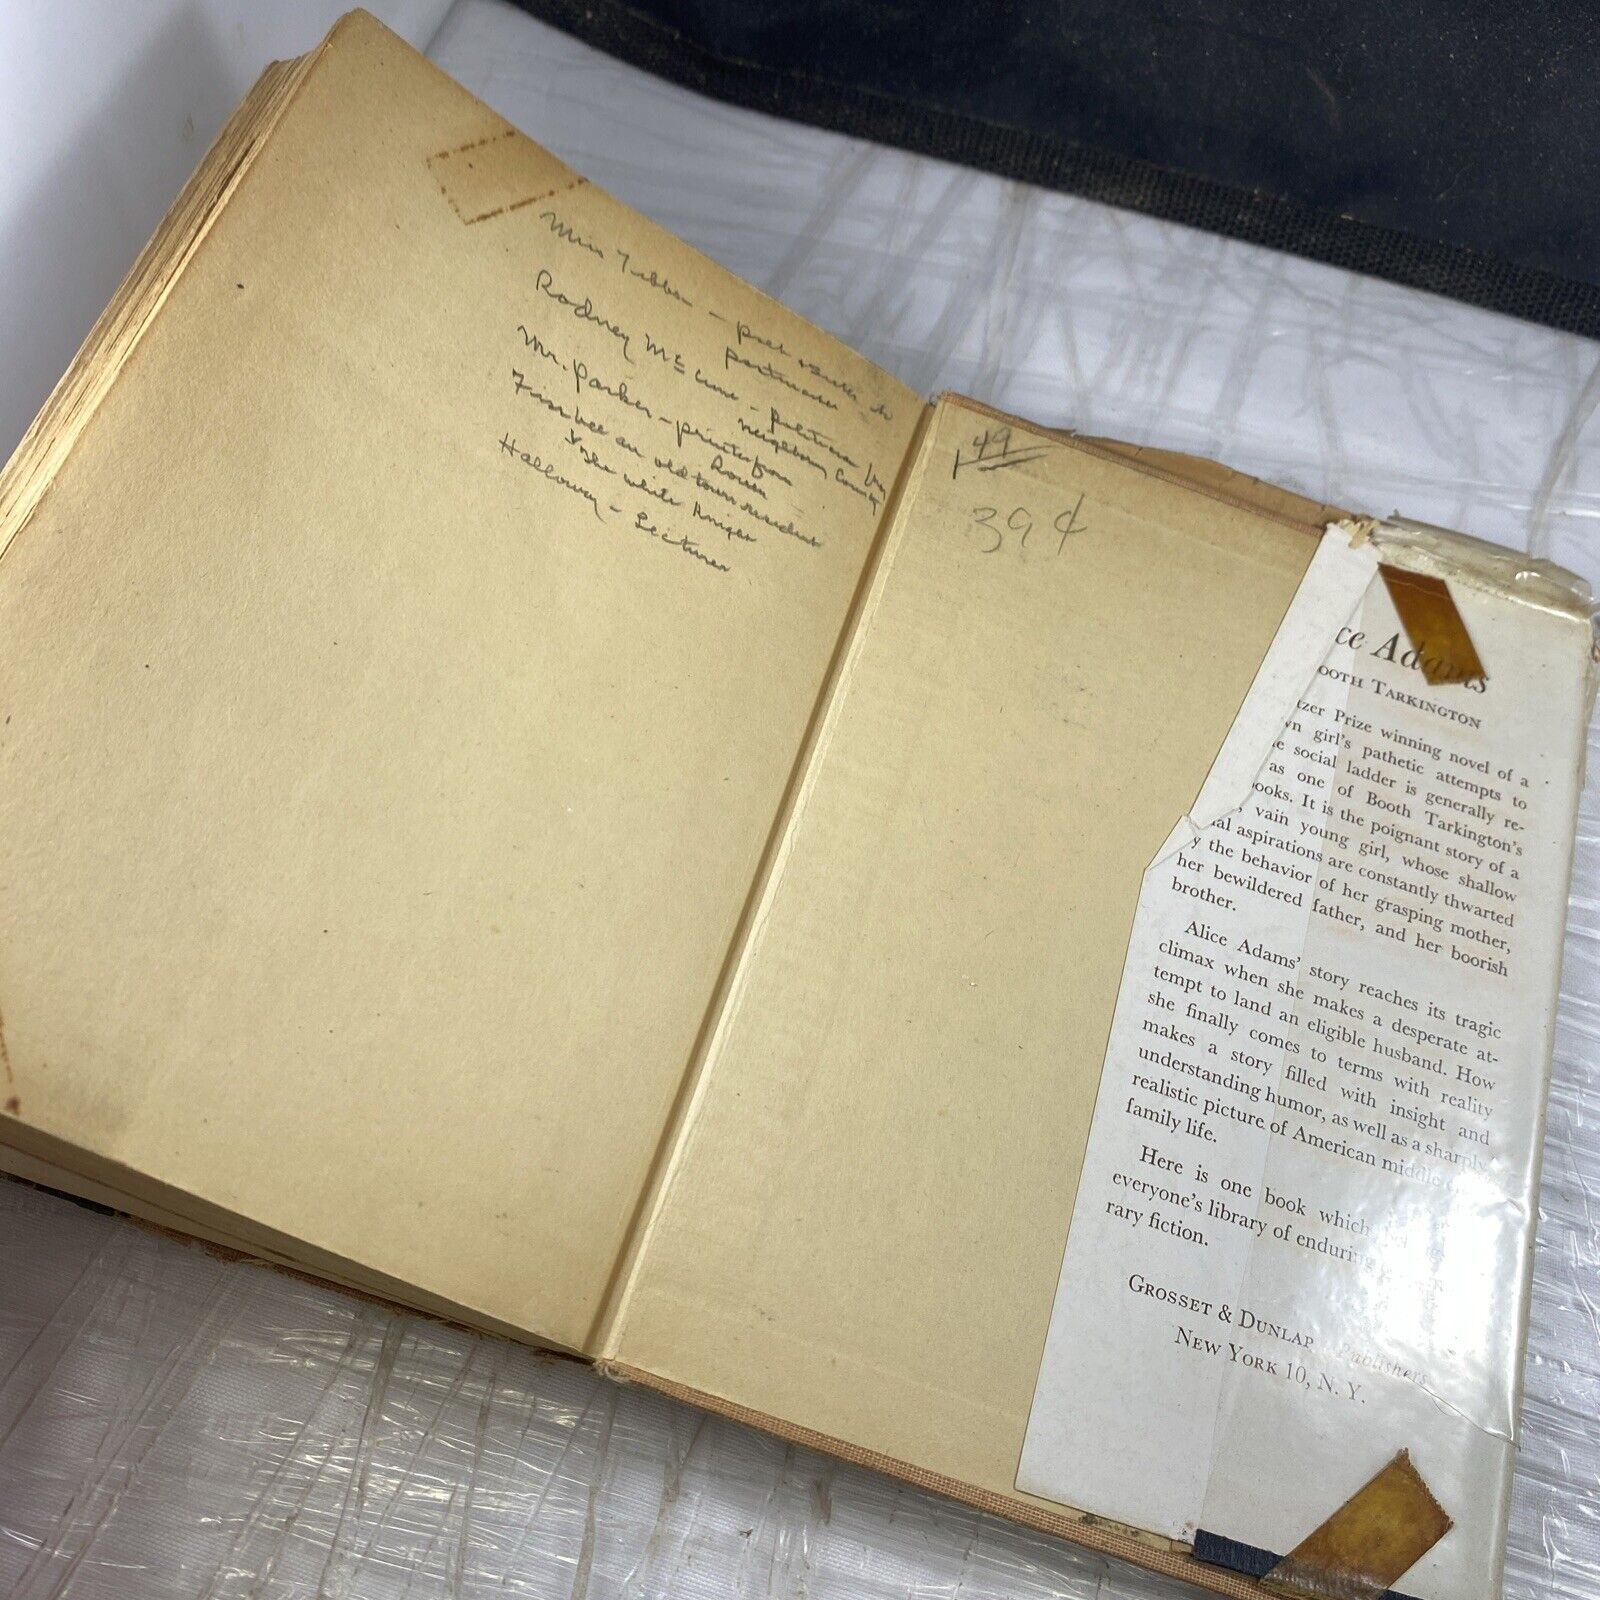 Miss Tibbs - poet & sister to
postmaster
Rodney McCune - politician from
neighboring county
Mr. Parker - printer from
Rouen
Fisbee an old town resident
The white Knight
Halloway - Lecturer
49
39 ¢
ce Adams
OOTH TARKINGTON
tzer Prize winning novel of a
wn girl's pathetic attempts to
e social ladder is generally re-
as one of Booth Tarkington's
ooks. It is the poignant story of a
, vain young girl, whose shallow
ial aspirations are constantly thwarted
y the behavior of her grasping mother,
her bewildered father, and her boorish
brother.
Alice Adams' story reaches its tragic
climax when she makes a desperate at-
tempt to land an eligible husband. How
she finally comes to terms with reality
makes a story filled with insight and
understanding humor, as well as a sharply
realistic picture of American middle
family life.
Here is one book which
everyone's library of enduring
rary fiction.
GROSSET & DUNLAP, Publishers
NEW YORK 10, N. Y.